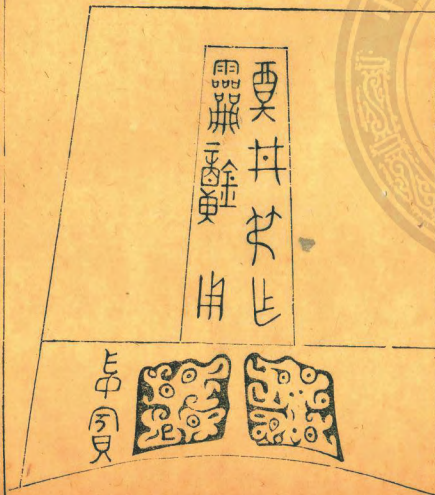 奠井叔乍
霝鐘用
妥賓